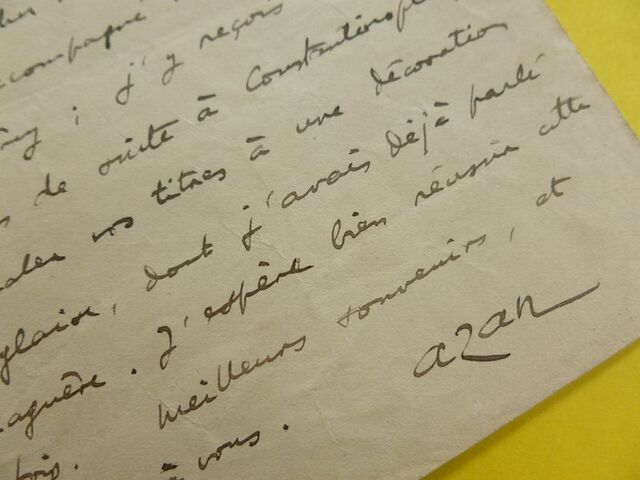 accompagné
; j'y reçois
de suite à Constantinople
vos titres à une décoration
glaise, dont j'avais déjà parlé
aguère. J'espère bien réussir cette
fois. Meilleurs souvenirs, et
à vous.
azan